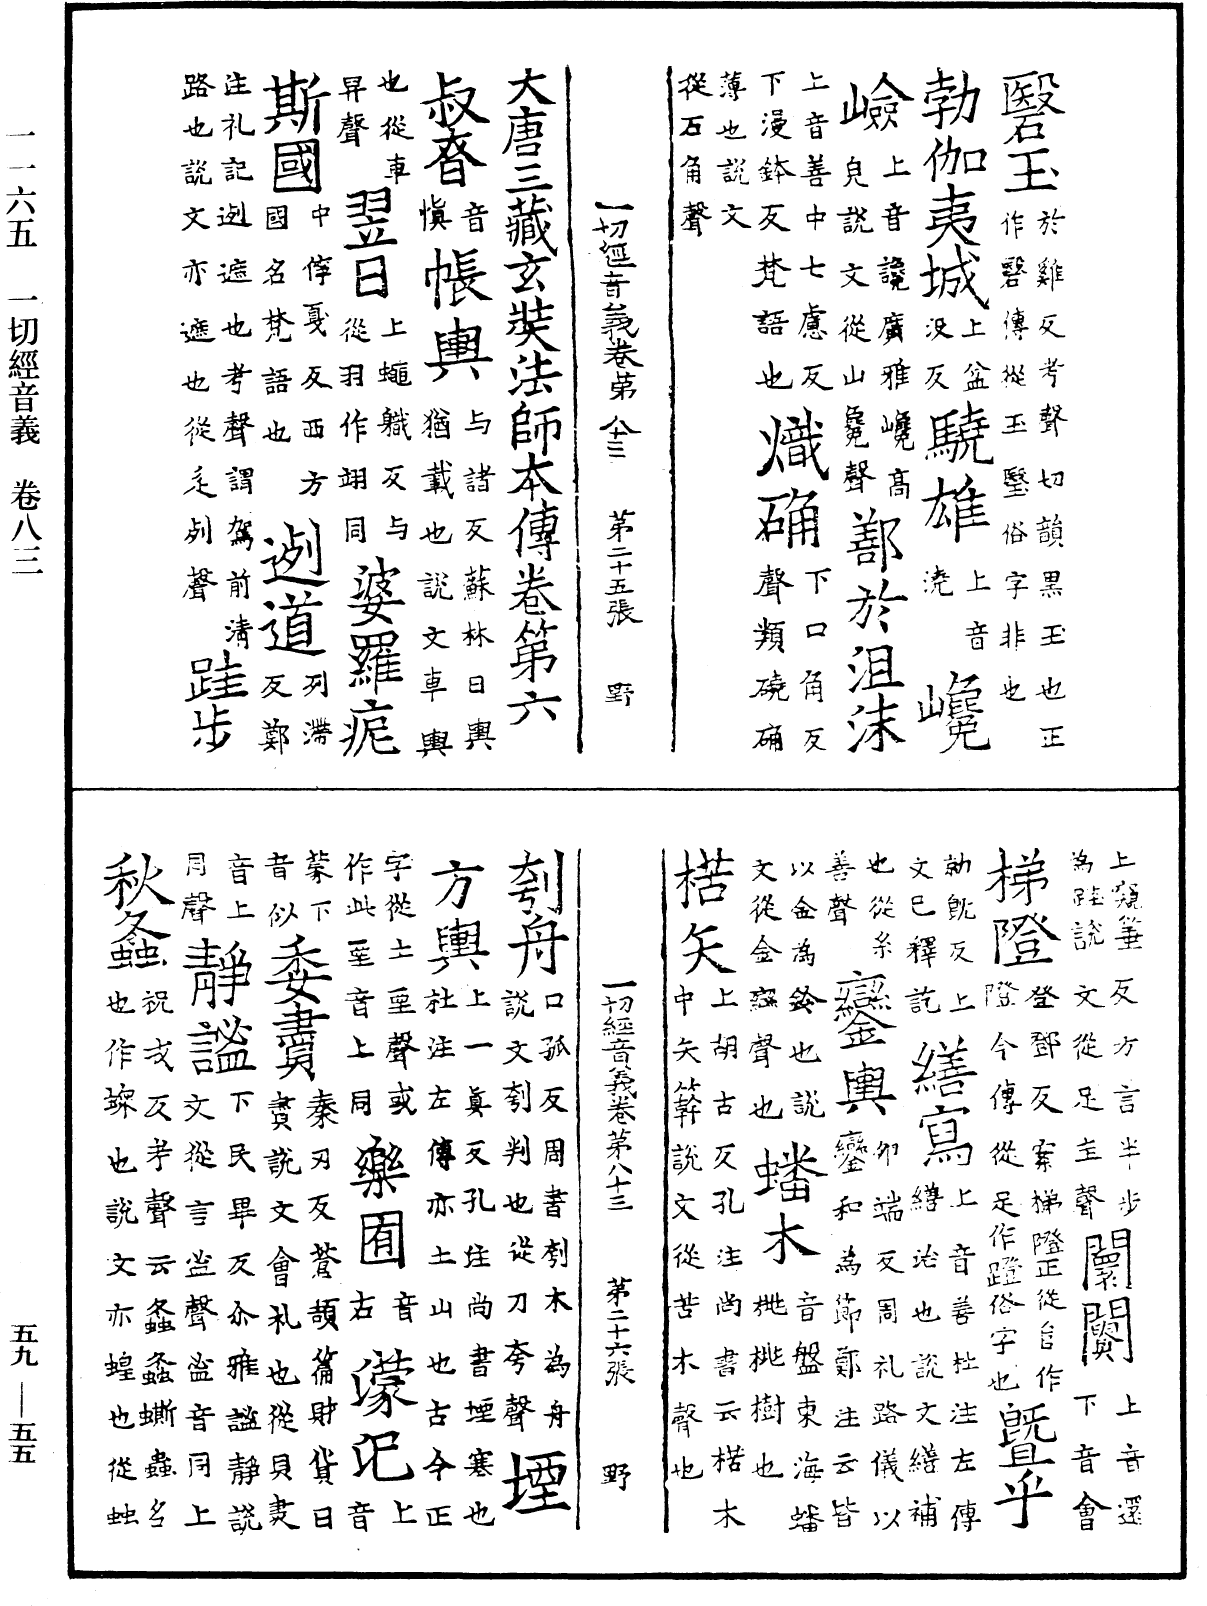 一一六五 一切經音義 卷八三
瑿玉於雞反考聲切韻黑玉也正作瑿傳從玉堅俗字非也
勃伽夷城上盆沒反
驍雄上音澆
巉嶮上音讒廣雅巉高皃說文從山毚聲
鄯於沮沫上音善中七慮反下漫鉢反梵語也
熾确下口角反聲類磽确薄也說文從石角聲
一切經音義卷第八十三 第二十五張 野
大唐三藏玄奘法師本傳卷第六
叔眘音愼
帳輿与諸反蘇林曰輿猶載也說文車輿也從車舁聲
翌日上蠅軄反与從羽作翊同
婆羅痆斯國中㑌戛反西方國名梵語也
迾道列滯反鄭注礼記迾遮也考聲謂駕前清路也說文亦遮也從辵列聲
跬步
上窺箠反方言半步為跬說文從足圭聲
闤闠上音還下音會
梯隥登鄧反案梯隥正從𠂤作隥今傳從足作蹬俗字也
曁乎勑旣反上文已釋訖
繕寫上音善杜注左傳繕治也說文繕補也從糸善聲
鑾輿卵端反周礼路儀以鑾和為節鄭注云皆以金為鈴也說文從金䜌聲也
蟠木音盤東海蟠桃桃樹也
楛矢上胡古反孔注尚書云楛木中矢簳說文從苦木聲也
一切經音義卷第八十三 第二十六張 野
刳舟口孤反周書刳木為舟說文刳判也從刀夸聲
堙方輿上一眞反孔注尚書堙塞也杜注左傳亦土山也古今正字從土垔聲或作此垔音上同
藥囿音右
濛汜上音蒙下音似
委賮秦刃反蒼頡篇財貨曰賮說文會礼也從貝𦘔音上同聲
靜謐下民畢反尒雅謐靜說文從言𥁑聲𥁑音同上
秋螽祝戎反考聲云螽螽蟖蟲名也作𧑄也說文亦蝗也從䖵
五九—五五